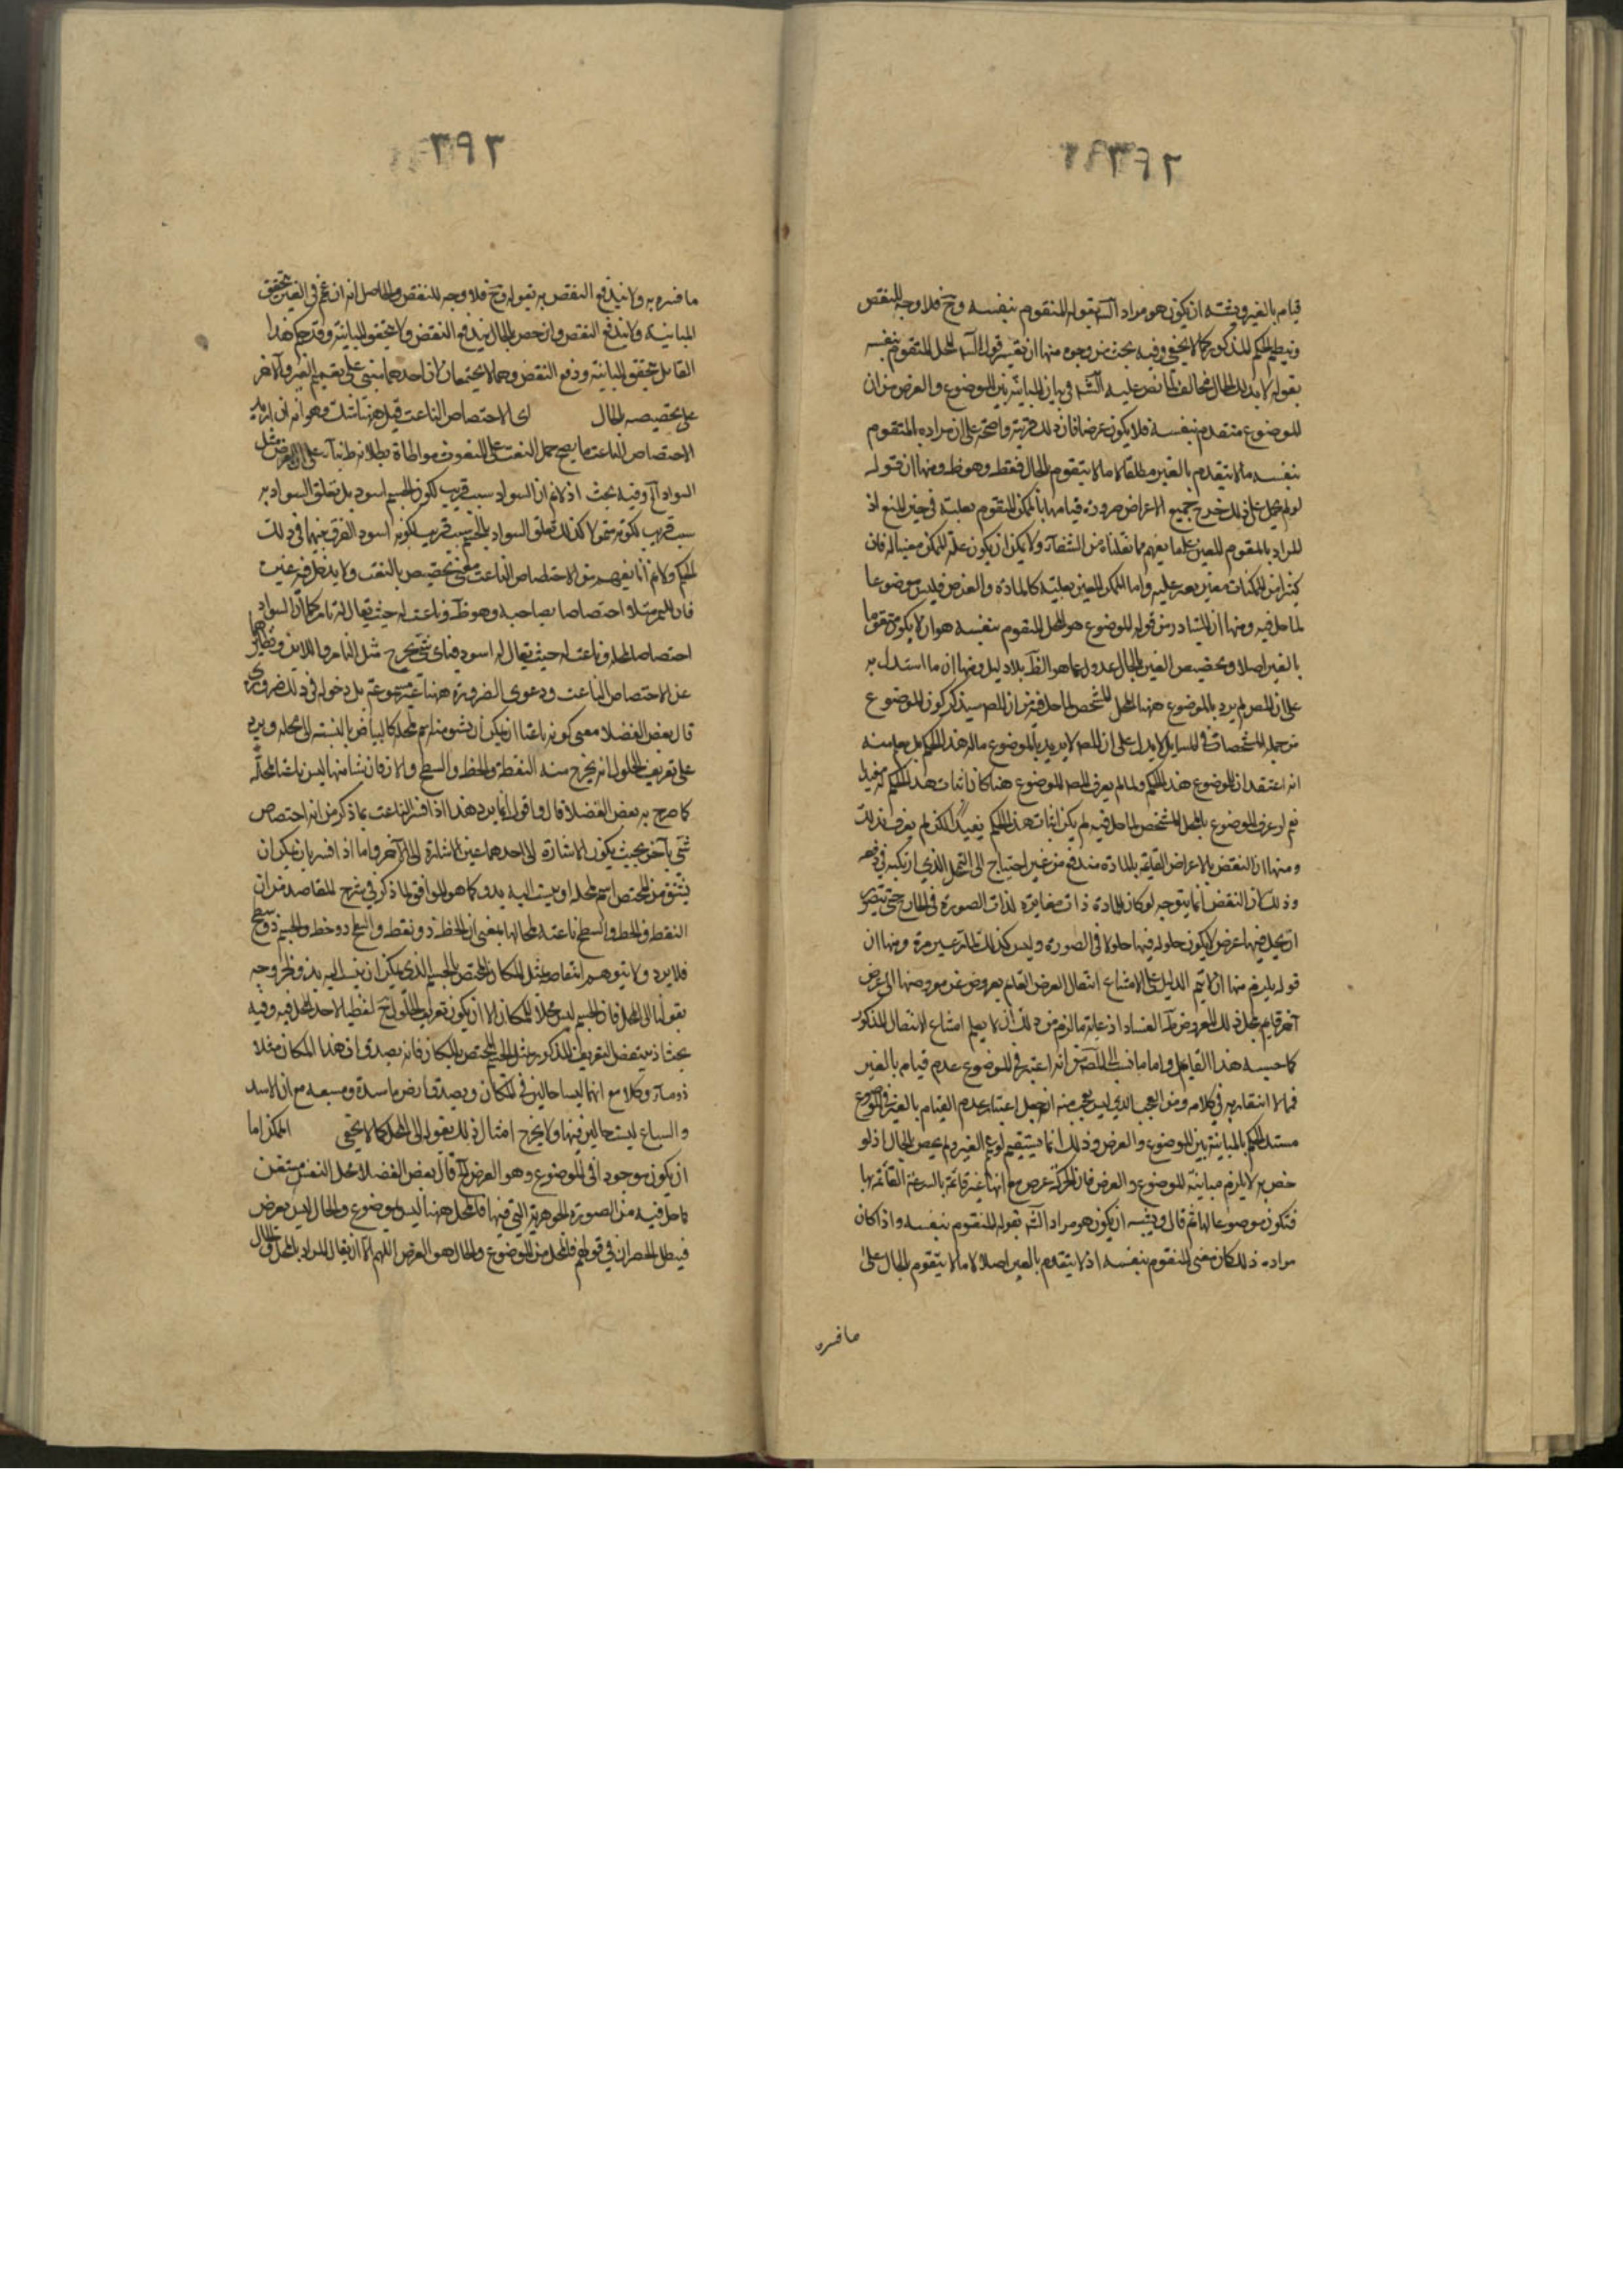 قيامه بالغير ويشبه ان يكون هو مراد الشه بقوله المتقوم بنفسه وح فلا وجه للنقض
ويبطل الحكم المذكور كما لا يخفى وفيه بحث من وجوه منها ان تفسير قول الشه المحل المتقوم بنفسه
بقوله لا بذلك الحال مخالف لما نص عليه الشه في بيان المباينة بين الموضوع والعرض من ان
الموضوع متقدم بنفسه فلا يكون عرضا فان ذلك قرينة واضحة على ان مراده المتقوم
بنفسه ما لا يتقدم بالغير مطلقا لا ما لا يتقوم بالحال فقط وهو ظ ومنها ان قوله
لو لم يحمل على ذلك خرج جميع الاعراض ضرورة قيامها بالممكن المتقوم بعلته في حيز المنع اذ
المراد بالمقوم المعين على ما يفهم مما نقلناه من الشفاء ولا يمكن ان يكون علة الممكن معينا له فان
كثيرا من الممكنات معين بعرعليه واما الممكن المعين بعلته كالمادة والعرض فليس موضوعا
لما حل فيه ومنها ان المتبادر من قوله الموضوع هو المحل المتقوم بنفسه هو ان لا يكون متقوما
بالغير اصلا وتخصيص الغير بالحال عدول عما هو الظ بلا دليل ومنها ان ما استدل به
على ان المص لم يرد بالموضوع ههنا المحل المشخص لما حل فيه من ان المص سيذكر كون الموضوع
من جملة المشخصات في المسايل لا يدل على ان المص لا يريد بالموضوع ماله هذا الحكم بل يعلم منه
انه اعتقد ان للموضوع هذا الحكم ولما لم يعرف المص الموضوع هنا كان اثبات هذا الحكم له مفيدا
نعم لو عرف الموضوع بالمحل المشخص لما حل فيه لم يكن اثبات هذا الحكم مفيدا لكن لم يعرف بذلك
ومنها ان النقض بالاعراض القايمة بالمادة مندفع من غير احتياج الى التمحل الذي ارتكبه في دفعه
وذلك لان النقض انما يتوجه لو كان للمادة ذات مغايرة لذات الصورة في الخارج حتى يتصور
ان يحل فيها عرض لا يكون حلوله فيها حلولا في الصورة وليس كذلك لما مر غير مرة ومنها ان
قوله يلزم منها ان لا يتم الدليل على امتناع انتقال العرض القايم بعروض عن معروضها الى عرض
آخر قايم بمحل ذلك المعروض ظ الفساد اذ غاية ما لزم من ذلك ان لا يعلم امتناع الانتقال المذكور
كما حسبه هذا القايل واما ما نسب الى المص من انه اعتبر في الموضوع عدم قيامه بالغير
فمما لا اشعار به في كلامه ومن العجب الذي ليس بعجب منه ان جعل اعتبار عدم القيام بالغير في الموضوع
مستند الحكم بالمباينة بين الموضوع والعرض وذلك انما يستقيم لو عم الغير ولم يخص بالحال اذ لو
خص به لا يلزم مباينة الموضوع والعرض فان الحركة عرض مع انها غير قايمة بالسرعة القائمة بها
فتكون موضوعا لها ثم قال ويشبه ان يكون هو مراد الشه بقوله المتقوم بنفسه واذا كان
مراده ذلك كان معنى المتقوم بنفسه اذ لا يتقدم بالغير اصلا لا ما لا يتقوم بالحال على
ما فسره
٢٩٢
ما فسره به ولا يندفع النقض به بقوله وح فلا وجه للنقض والحاصل انه ان عم في الغير تحقق
المباينة ولا يندفع النقض وان خص بالحال يندفع النقض ولا تتحقق المباينة وقد حكم هذا
القايل بتحقق المباينة ودفع النقض وهما لا يجتمعان لان احدهما مبتنى على تعميم الغير والآخر
على تخصيصه بالحال اى الاختصاص الناعت قيل ههنا شك وهو انه ان اريد
الاختصاص الناعت ما يصح حمل النعت على المنعوت مواطاة بطلانه ظ بناء على ان العرض مثل
السواد آه وفيه بحث اذ لانم ان السواد سبب قريب لكون الجسم اسود بل تعلق السواد به
سبب قريب لكونه متمولا كذلك تعلق السواد بالجسم سبب قريب لكونه اسود الفرق بينهما في ذلك
الحكم ولانم انا نفهم من الاختصاص الناعت معنى تخصيص بالنعت ولا يدخل فيه غيره
فان التمر مثلا اختصاصا بصاحبه وهو ظ وناعت له حيث يقال له تامر كما ان للسواد
اختصاصا بمحله وناعت له حيث يقال له اسود فباى شئ يخرج مثل التامر واللابن ونظايرهما
عن الاختصاص الناعت ودعوى الضرورة ههنا غير مسموعة بل دخوله في ذلك ضروري
قال بعض الفضلا معنى كونه ناعتا ان يمكن ان يشتق منه اسم لمحله كالبياض بالنسبة الى محله ويرد
على تعريف الحلول انه يخرج منه النقطة والخط والسطح والازمان شيئا منها ليس ناعتا لمحله
كما صرح به بعض الفضلا قال واقول انما يرد هذا اذا فسر الناعت بما ذكر من انه اختصاص
شئ بآخر بحيث يكون الاشارة الى احدهما عين الاشارة الى الآخر واما اذا فسر بان يمكن ان
يشتق من المختص اسم لمحله او ينسب اليه بذو كما هو الموافق لما ذكر في شرح المقاصد من ان
النقطة والخط والسطح ناعتة لمحالها بمعنى ان الخط ذو نقطة والسطح ذو خط والجسم ذو سطح
فلا يرد ولا يتوهم انتقاضه بمثل المكان المختص بالجسم الذي يمكن ان ينسب اليه بذو لخروجه
بقولنا الى المحل فان الجسم ليس محلا للمكان الا ان يكون تعريف الحلول ح لفظيا لاخذ المحل فيه وفيه
بحث اذ ينتقض التعريف المذكور بمثل الجسم المختص بالمكان فانه يصدق ان هذا المكان مثلا
ذو ماء وكلاء مع انهما ليسا حالين في المكان ويصدق ارض ماسدة ومسبعة مع ان الاسد
والسباع ليست حالين فيها ولا يخرج امثال ذلك بقوله الى المحل كما لا يخفى الممكن اما
ان يكون موجودا في الموضوع وهو العرض آه قال بعض الفضلا محل النفس مستغن
ما حل فيه من الصورة الجوهرية التي فيها فالمحل ههنا ليس بموضوع والحال ليس بعرض
فيبطل الحصران في قولهم فالمحل من الموضوع والحال هو العرض اللهم الا ان يقال المراد بالمحل والحال